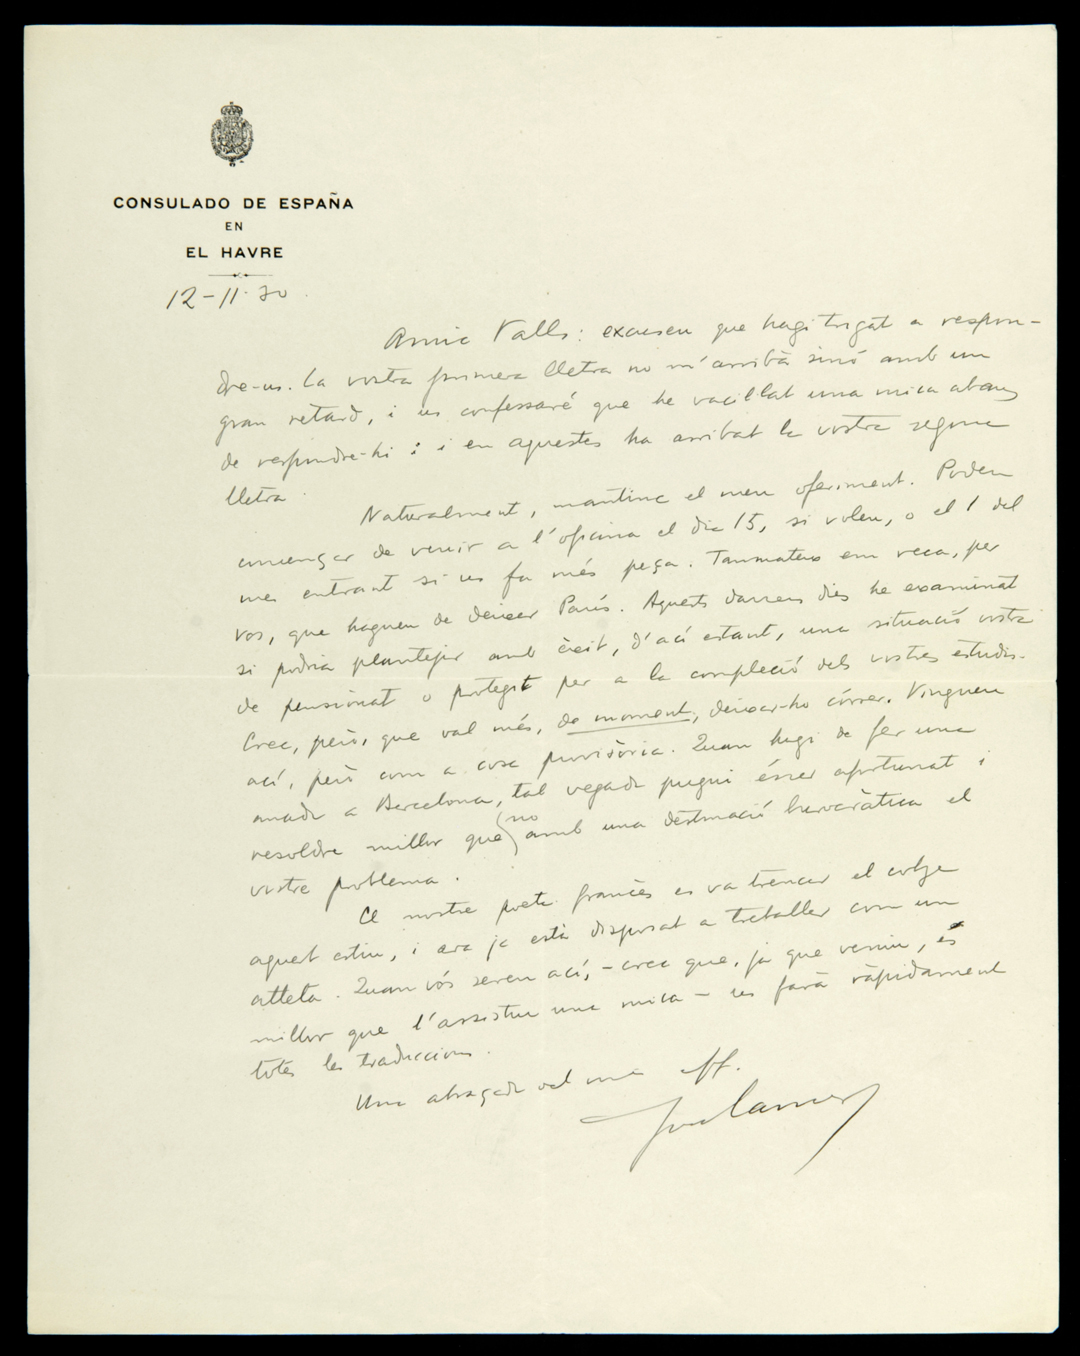 CONSULADO DE ESPAÑA
EN
EL HAVRE
12-11-30.
Amic Valls: excuseu que hagi trigat a respon-
dre-us. La vostra primera lletra no m'arribà sinó amb un
gran retard, i us confessaré que he vacil·lat una mica abans
de respondre-hi: i en aquestes ha arribat la vostra segona
lletra.
Naturalment, mantinc el meu oferiment. Podeu
començar de venir a l'oficina el dia 15, si voleu, o el 1 del
mes entrant si us fa més peça. Tanmateix em reca, per
vos, que hagueu de deixar París. Aquests darrers dies he examinat
si podria plantejar amb èxit, d'ací estant, una situació vostra
de pensionat o protegit per a la compleció dels vostres estudis.
Crec, però, que val més, de moment, deixar-ho córrer. Vingueu
ací, però com a cosa provisòria. Quan hagi de fer una
anada a Barcelona, tal vegada pugui ésser afortunat i
resoldre millor que (no) amb una destinació burocràtica el
vostre problema.
El nostre poeta francès es va trencar el colze
aquest estiu, i ara ja està disposat a treballar com un
atleta. Quan vós sereu ací, - crec que, ja que veniu, és
millor que l'assistiu una mica - us farà ràpidament
totes les traduccions.
Una abraçada del seu aff.
Josep Carner